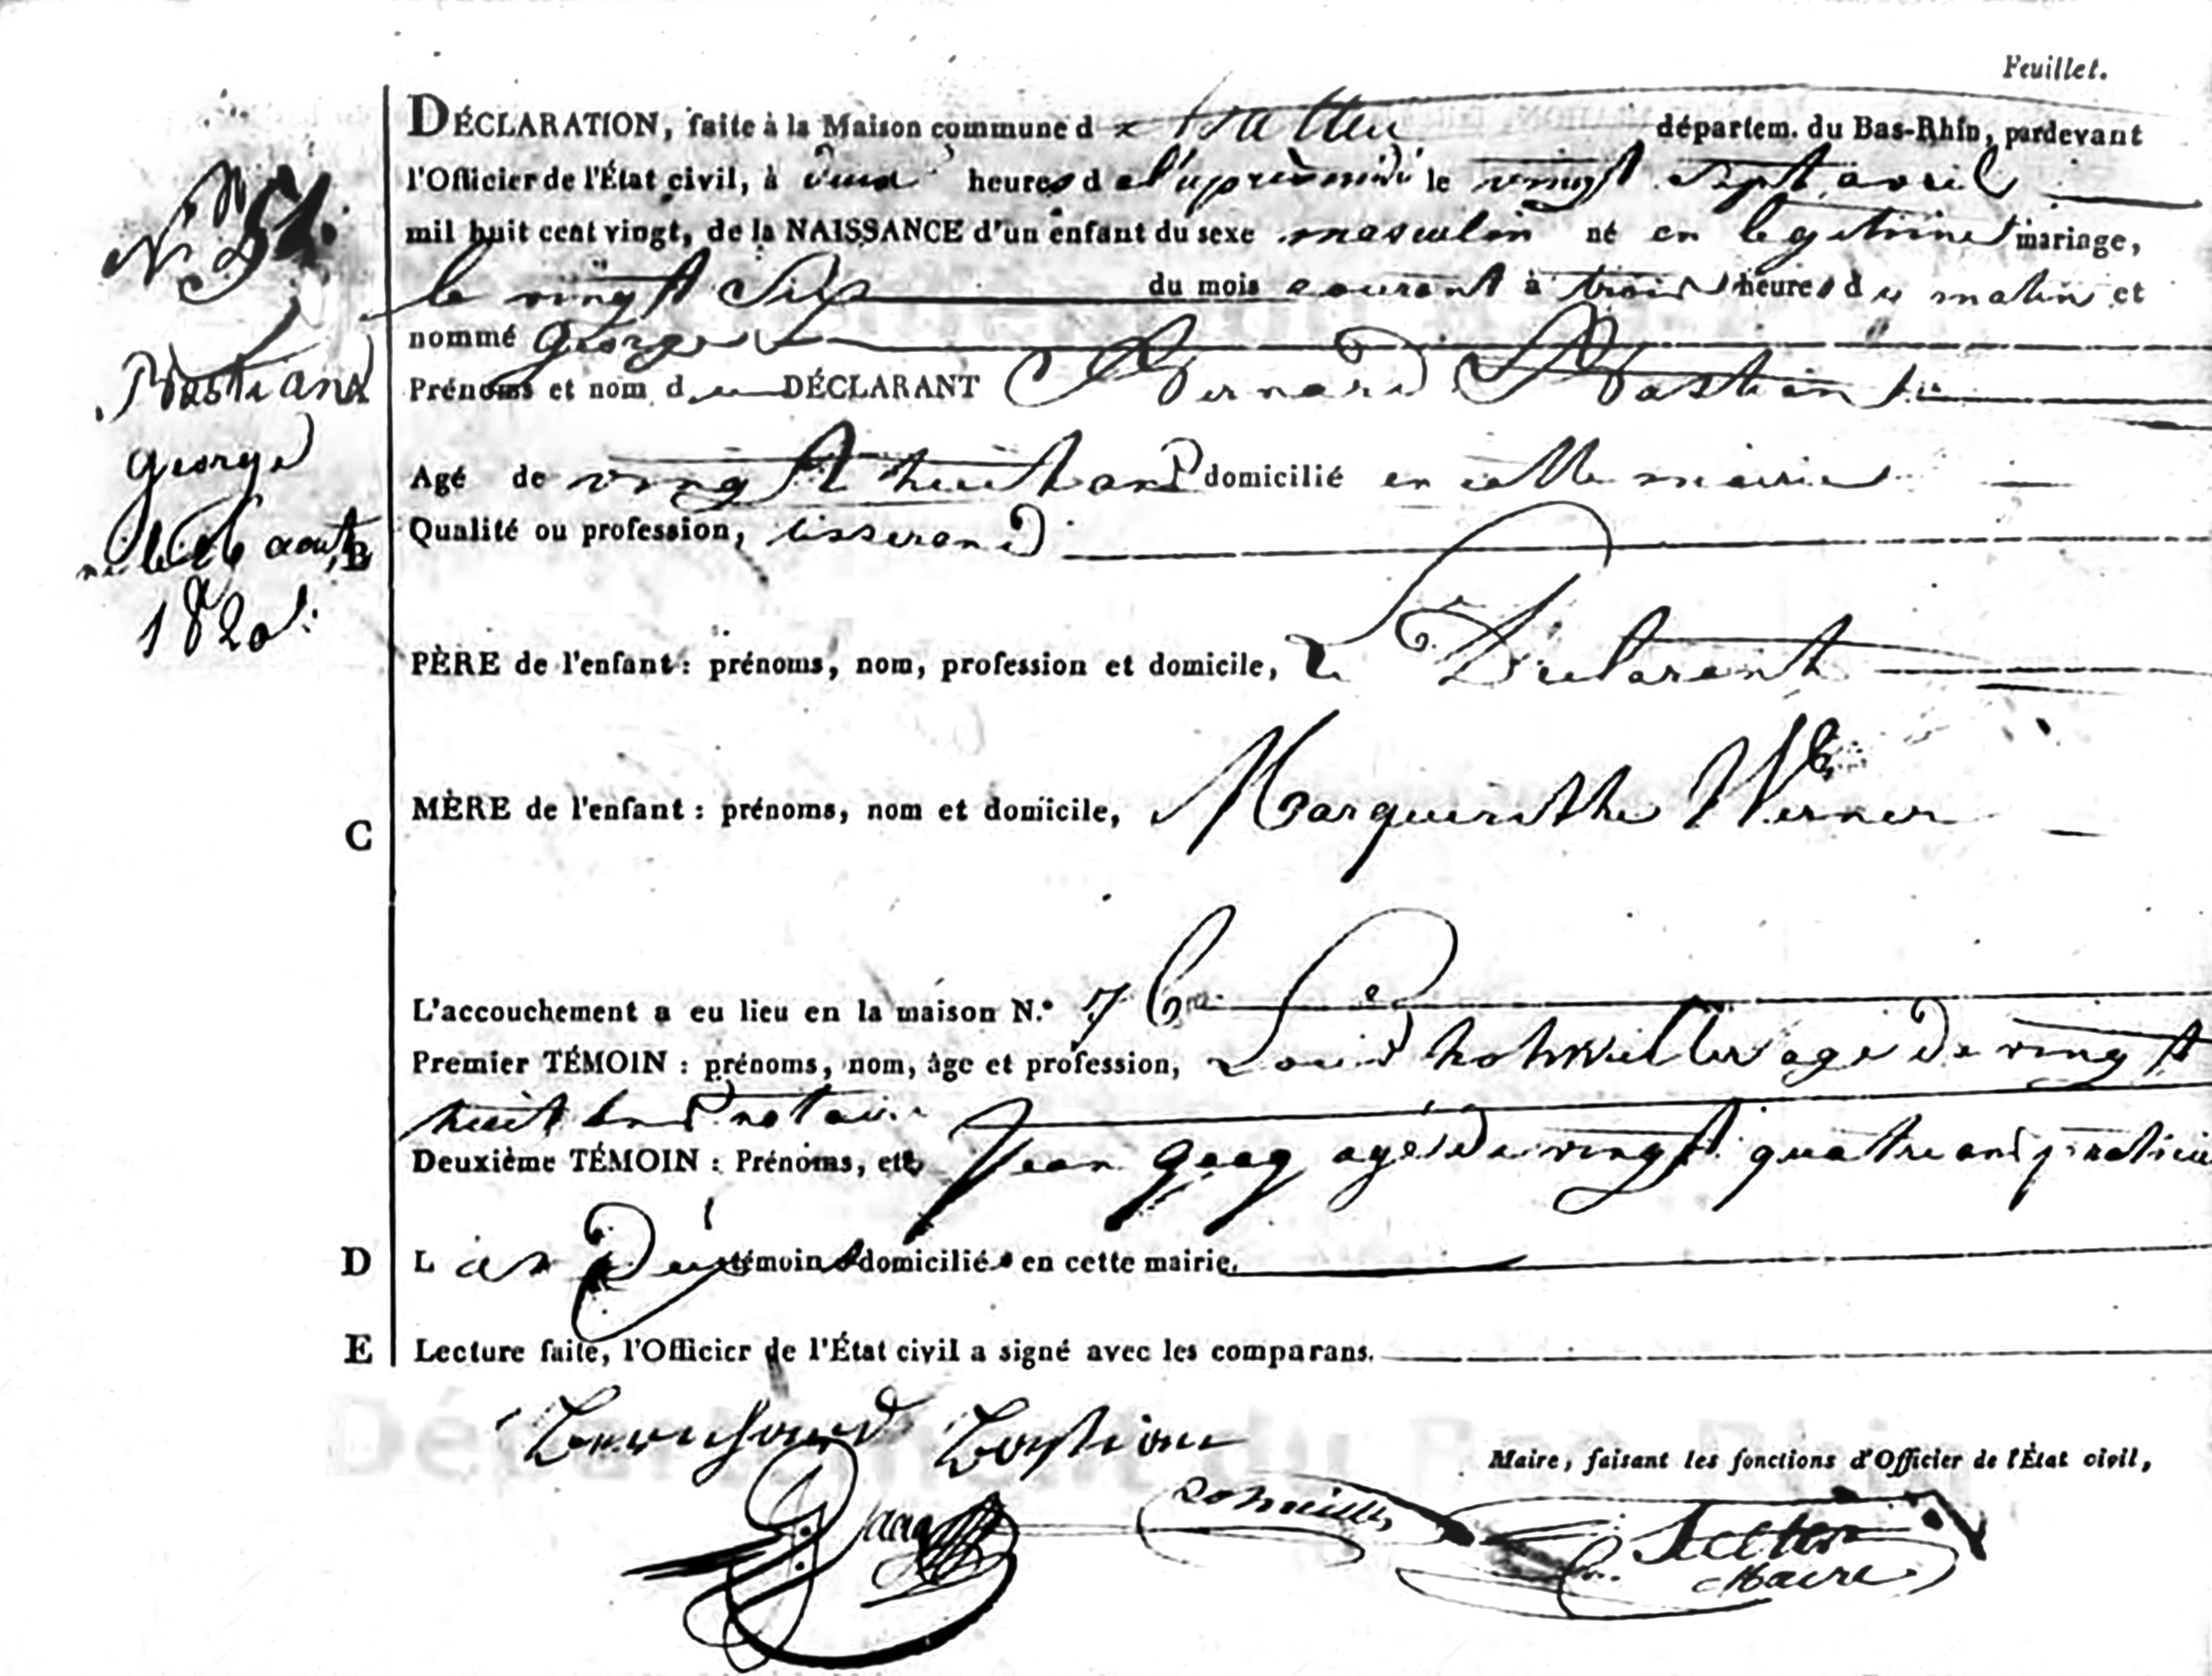 Feuillet.
DÉCLARATION, faite à la Maison commune d hatten départem. du Bas-Rhin, pardevant
l'Officier de l'État civil, à deux heures d el'après midi le vingt Sept avril
mil huit cent vingt, de la NAISSANCE d'un enfant du sexe masculin né en legitime mariage,
le vingt Six du mois courant à trois heures du matin et
nommé George
Prénoms et nom du DÉCLARANT Bernard Bastian
Agé de vingt huit ans domicilié en cette mairie
Qualité ou profession, tisserand
PÈRE de l'enfant : prénoms, nom, profession et domicile, Le Déclarant
MÈRE de l'enfant : prénoms, nom et domicile, Marguerithe Werner
L'accouchement a eu lieu en la maison N.°
Premier TÉMOIN : prénoms, nom, âge et profession, Louis agé de vingt
huit ans notaire
Deuxième TÉMOIN : Prénoms, etc. Jean gaag agé de vingt quatre ans
L témoins domiciliés en cette mairie.
Lecture faite, l'Officier de l'État civil a signé avec les comparans.
Bernhard Bastian
Maire, faisant les fonctions d'Officier de l'État civil,
gaag
Maire
N° 51.
Bastian
George
né le 26 aout
1820.
B
C
D
E